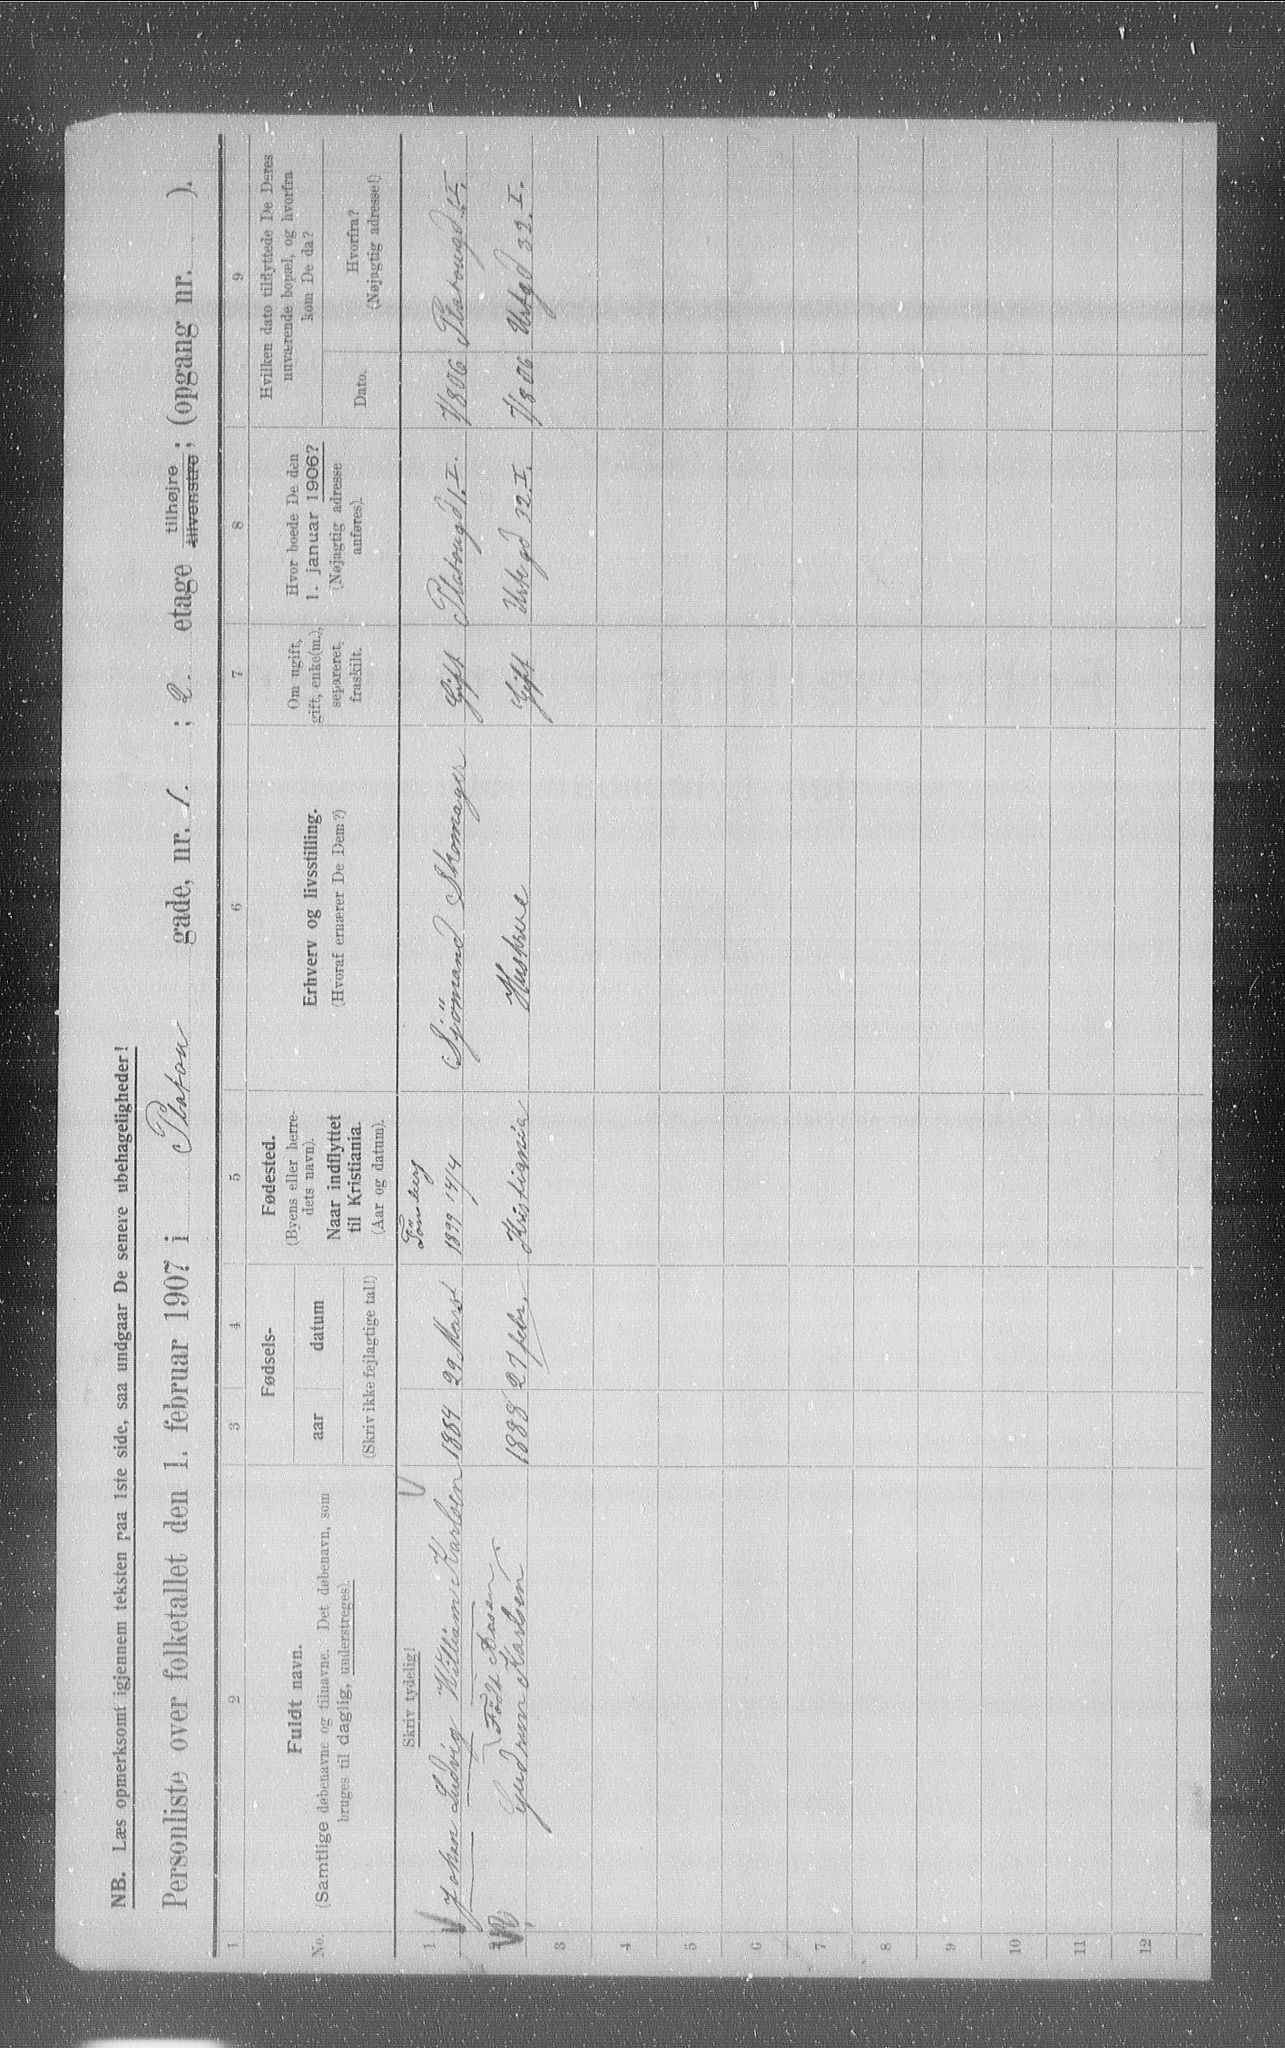 NB. Læs opmerksomt igjennem teksten paa 1ste side, saa undgaar De senere ubehageligheder!
Personliste over folketallet den 1. februar 1907 i Platou gade, nr. 1. ; 2. etage tilhøjre tilvenstre ; (opgang nr. ).
1 2 3 4 5 6 7 8 9
No.
Fuldt navn.
(Samtlige døbenavne og tilnavne. Det døbenavn, som
bruges til daglig, understreges).
Fødsels-
aar datum
(Skriv ikke fejlagtige tal!)
Fødested.
(Byens eller herre-
dets navn).
Naar indflyttet
til Kristiania.
(Aar og datum).
Erhverv og livsstilling.
(Hvoraf ernærer De Dem?)
Om ugift,
gift, enke(m.),
separeret,
fraskilt.
Hvor boede De den
1. januar 1906?
(Nøjagtig adresse
anføres).
Hvilken dato tilflyttede De Deres
nuværende bopæl, og hvorfra
kom De da?
Dato.
Hvorfra?
(Nøjagtig adresse!)
Skriv tydelig!
Tönsberg
1 Johan Ludvig William Karlsen 1884 29 Marst 1899 14/4 Sjömand Skomager Gift Platougd 1. I. 1/8 06 Platougd 1. I.
Födt Aasen
2 Gudrun Karlsen 1888 27 febr. Kristiania Hustrue Gift Urtegd 32. I. 1/8 06 Urtgd 32. I.
3
4
5
6
7
8
9
10
11
12